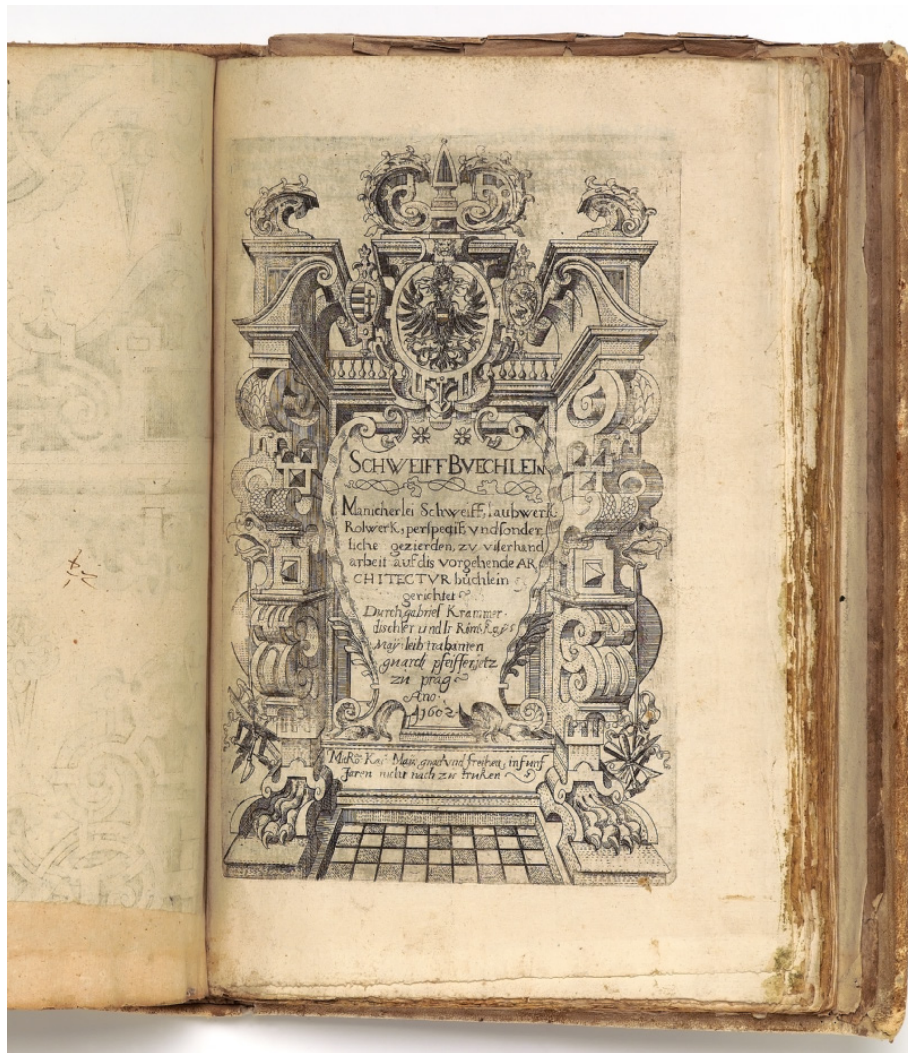 SCHWEIFF BVECHLEIN
Manicherlei Schweiff, laubwerk
Rolwerk, perspectif, vnd sonder
liche gezierden, zv vilerhand
arbeit auf dis vorgehende AR
CHITECTVR büchlein
gerichtet
Durch gabriel Krammer
dischler und Ir Röm: Kay:
May: leib trabanten
guardi pfeiffer jetz
zu prag
Ano
1602
Mit Rö: Kai: May: gnad und freihea, in funf
Jaren nicht nach zu truken